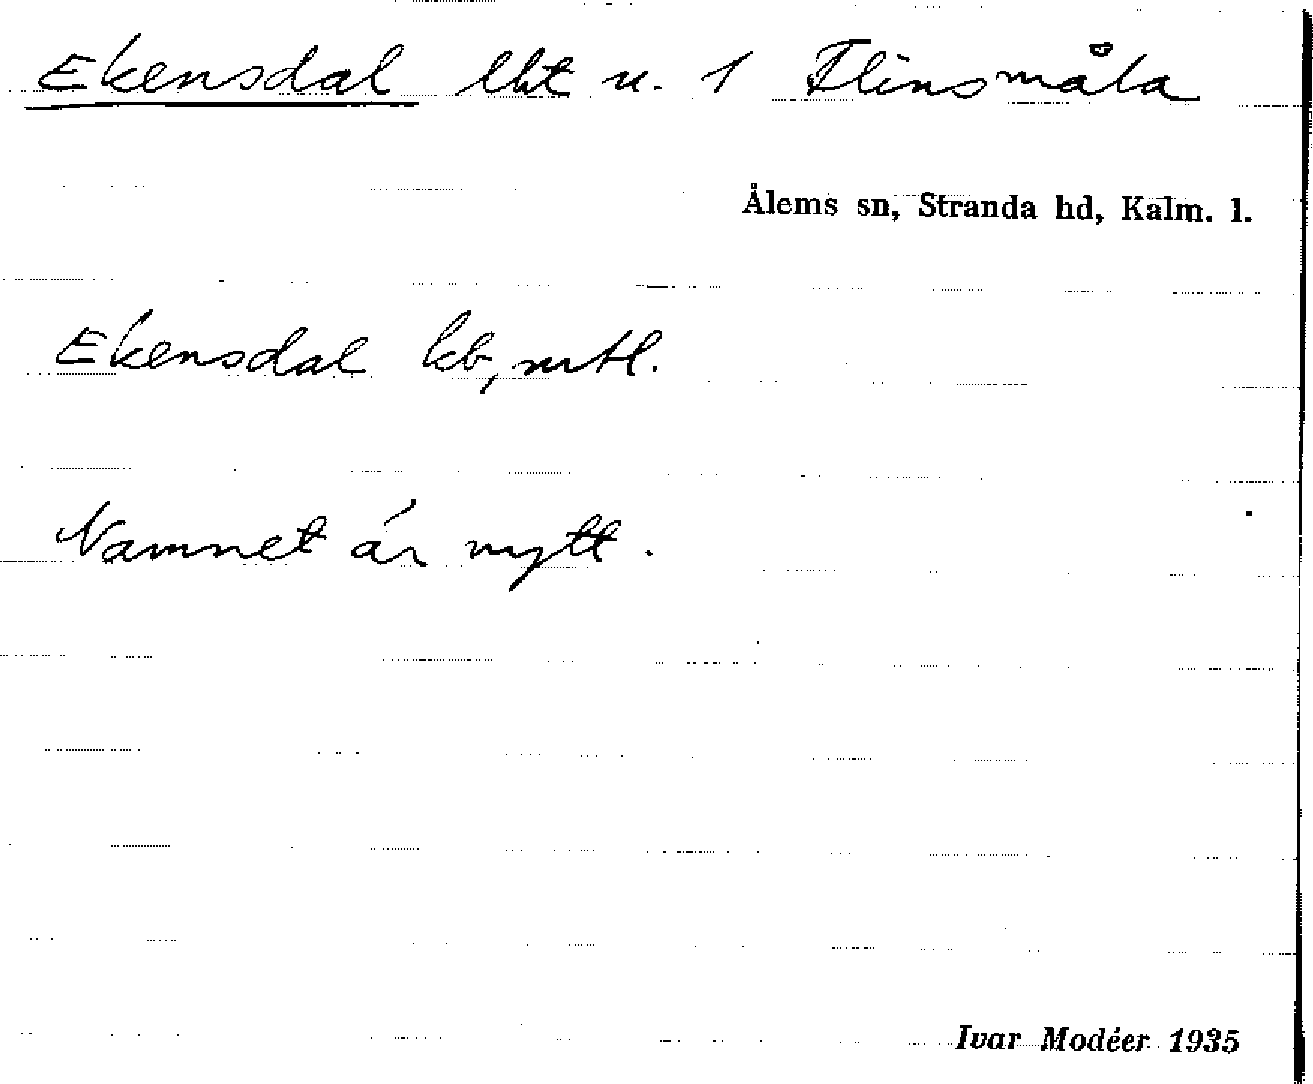 Ekensdal lht u. 1 Flinsmåla
Ålems sn, Stranda hd, Kalm. l.
Ekensdal kb, mtl.
Namnet är nytt.
Ivar Modéer 1935